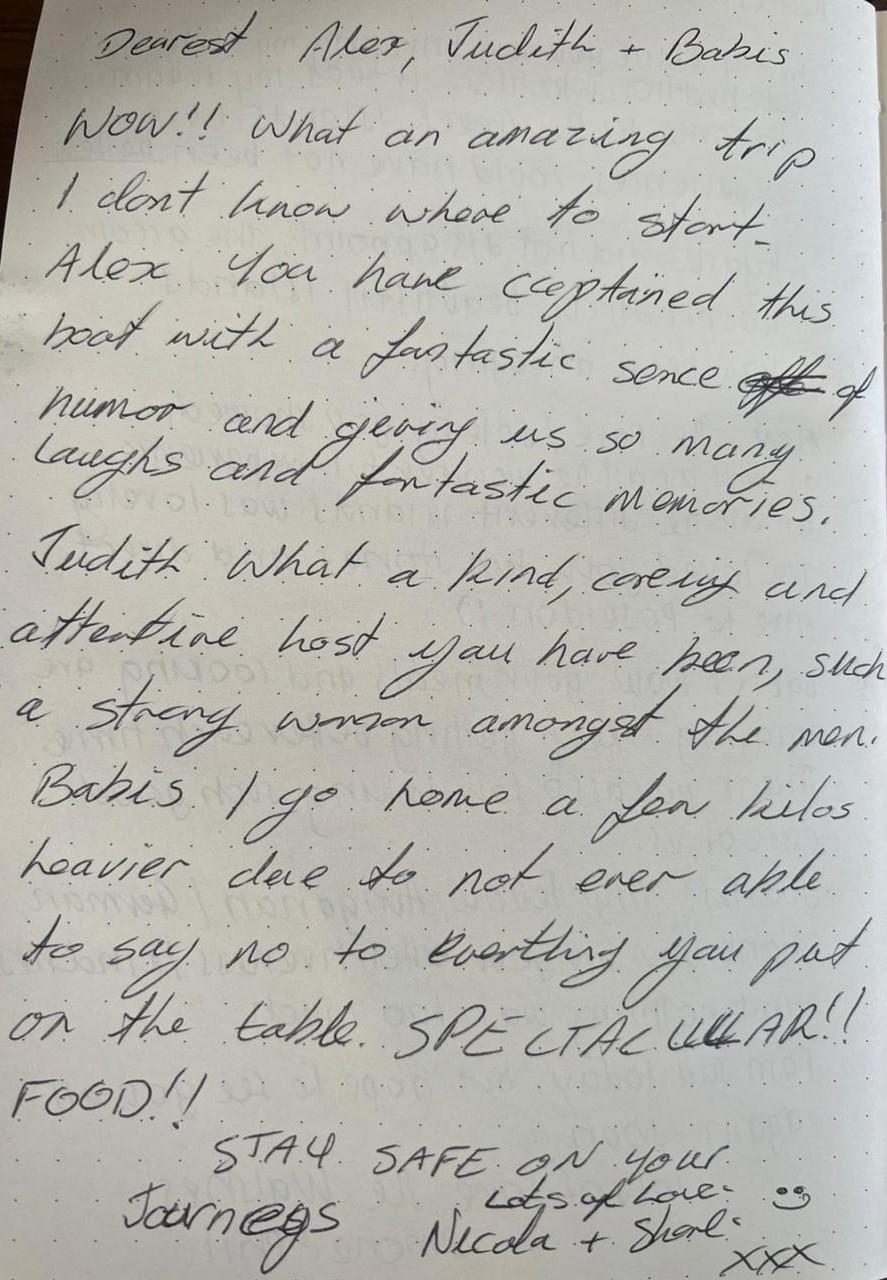 Dearest Alex, Judith + Babis
WOW!! What an amazing trip
I dont know where to start.
Alex You have captained this
boat with a fantastic sence of
humor and geving us so many
Laughs and fantastic memories.
Judith What a kind, careing and
attentive host you have been, such
a strong woman amongst the men.
Babis I go home a few kilos
heavier due to not ever able
to say no to Everthing you put
on the table. SPECTACULAR!!
FOOD!!
STAY SAFE ON YOUR
Journeys
Lots of Love
Nicola +
xxx